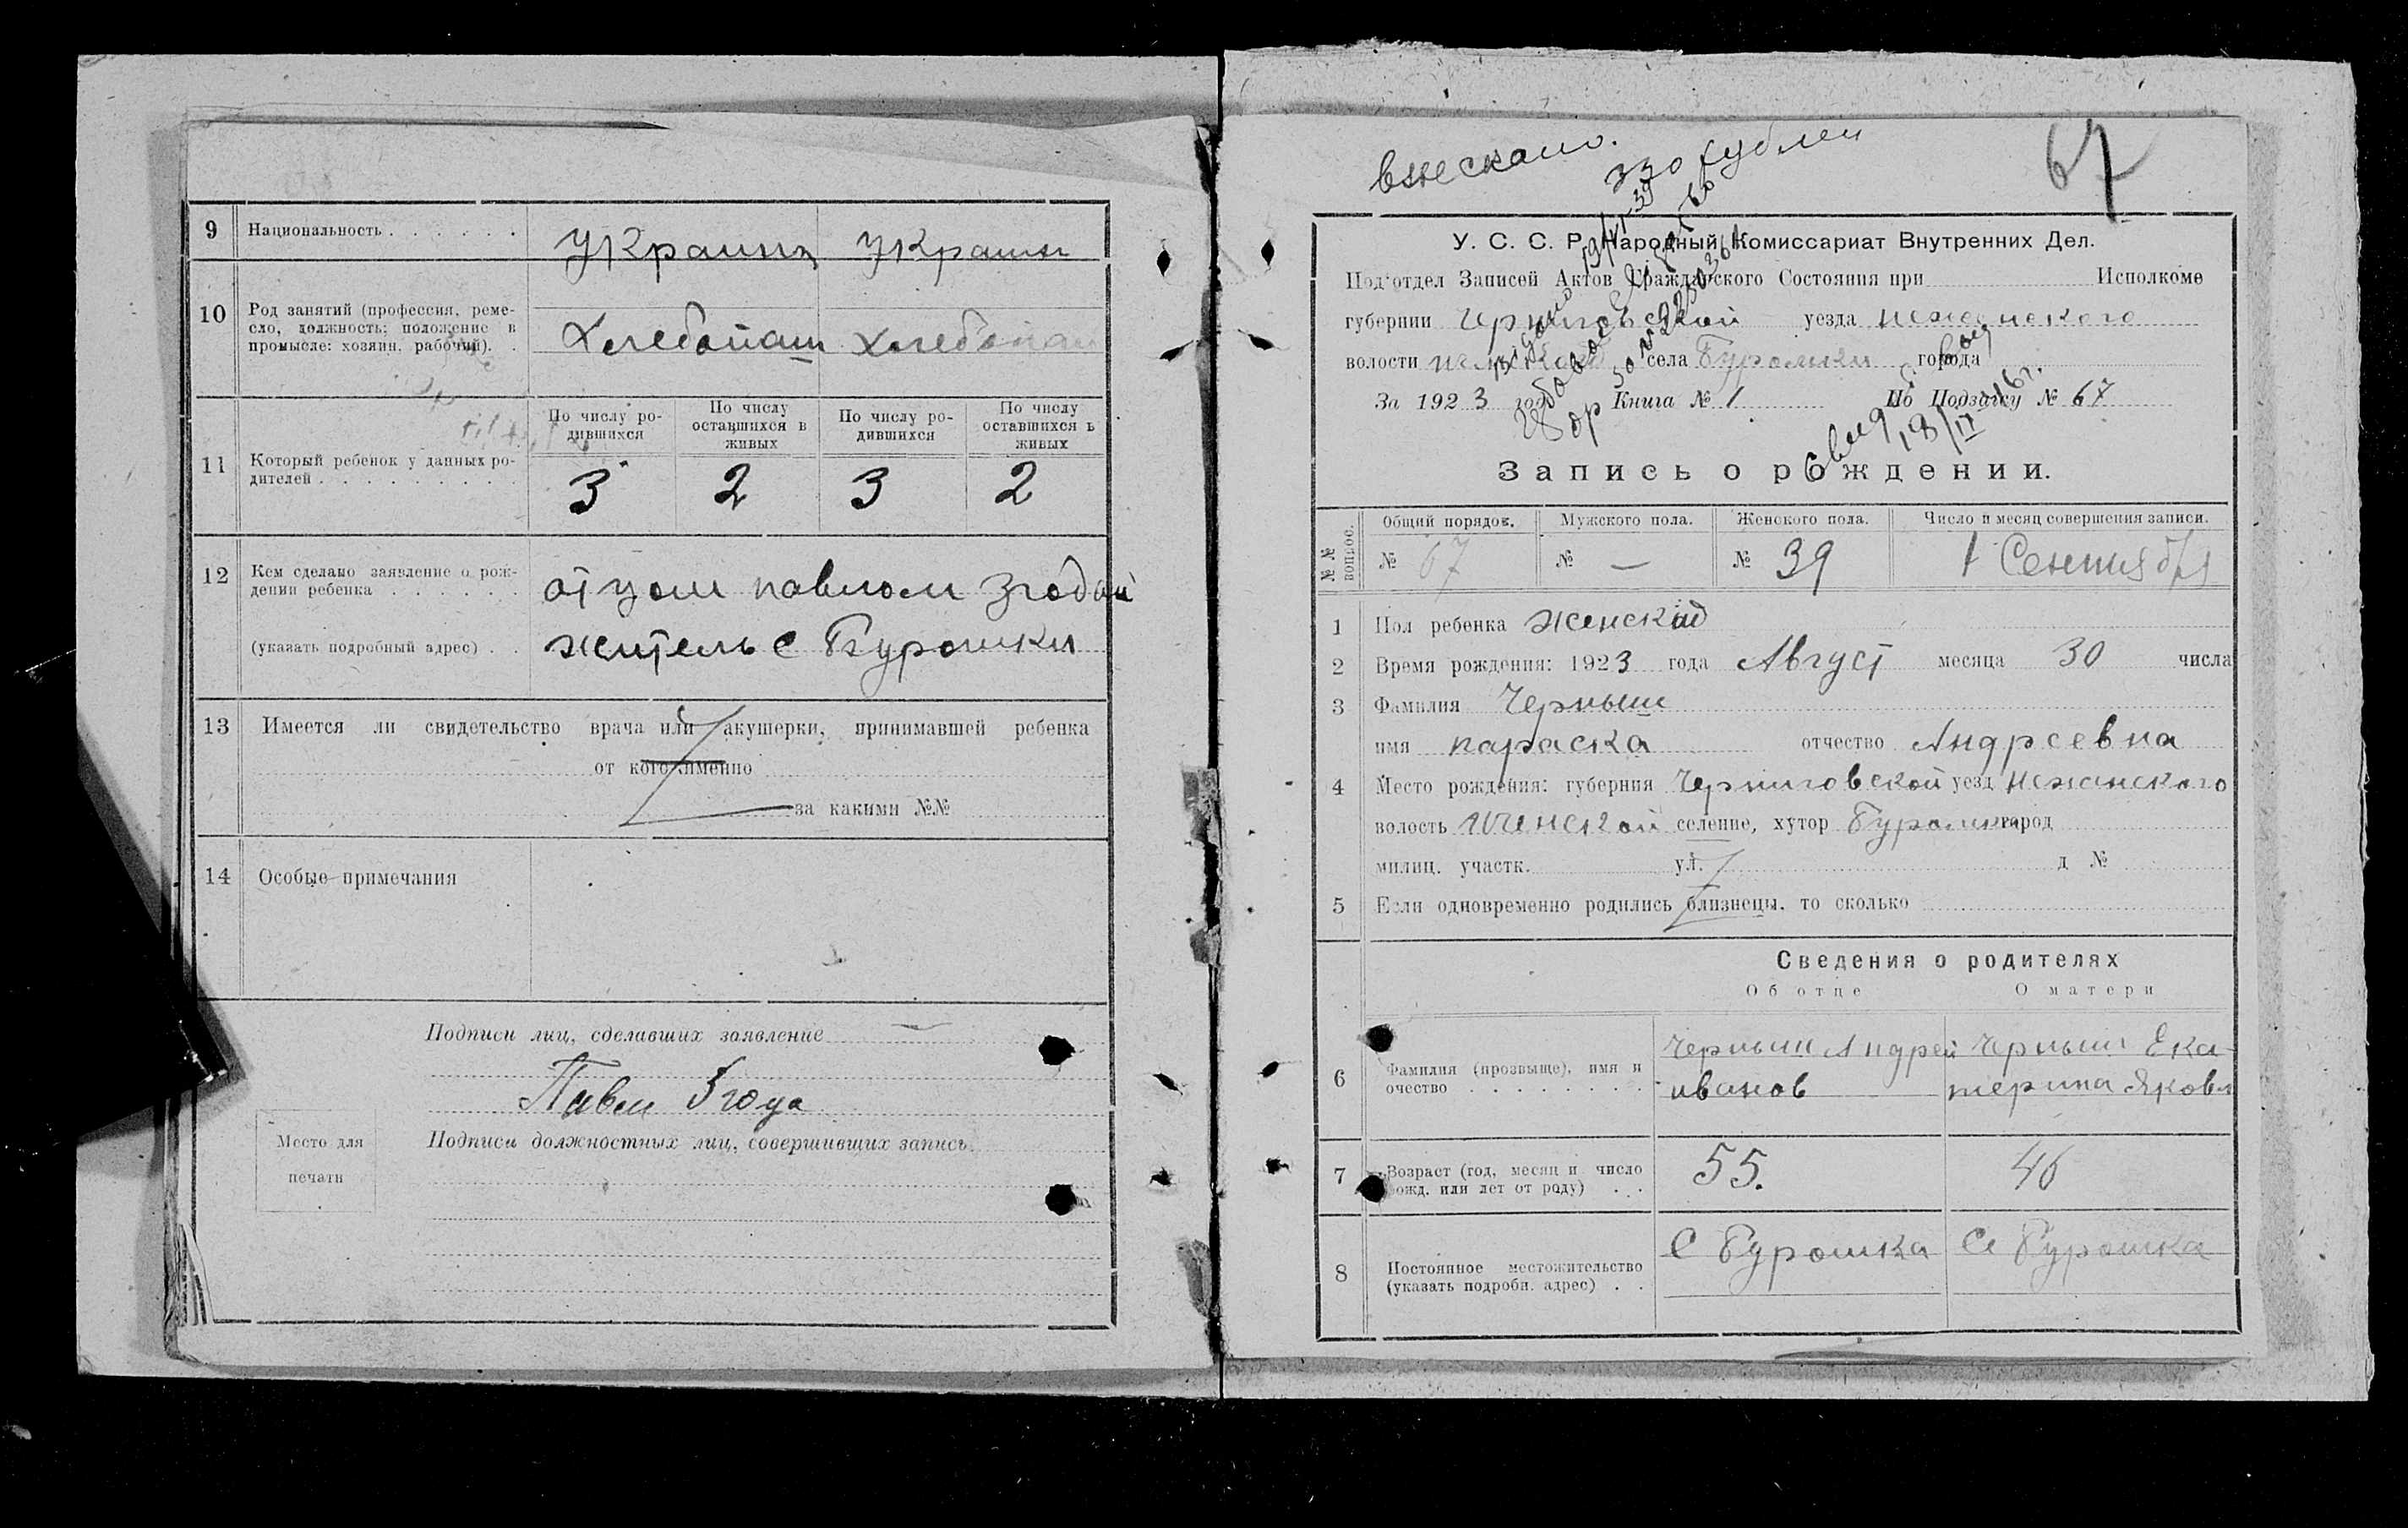 9 Национальность . . . . . . Украинц Украин
10 Род занятий (профессия, реме-
сло, должность; положение в
промысле: хозяин, рабочий). . Хлебопаш Хлебопаш
По числу ро-
дившихся
По числу
оставшихся в
живых
По числу ро-
дившихся
По числу
оставшихся в
живых
11 Который ребенок у данных ро-
дителей . . . . . . . . . 3 2 3 2
12 Кем сделано заявление о рож-
дении ребенка . . . . . . отцом павлом Згодой
(указать подробный адрес) . . житель с Буромки
13 Имеется ли свидетельство врача или акушерки, принимавшей ребенка
от кого именно
за какими №№
14 Особые примечания
Подписи лиц, сделавших заявление
Павел Згода
Подписи должностных лиц, совершивших запись
Место для
печати
взыскано.
330 рублей
67
У. С. С. Р. Народный Комиссариат Внутренних Дел.
Под‘отдел Записей Актов Гражданского Состояния при Исполкоме
губернии Черниговской уезда нежанского
волости села Буромки города
За 1923 год Книга № 1 По Подзагсу № 67
Запись о рождении.
№№ вопрос. Общий порядок. Мужского пола. Женского пола. Число и месяц совершения записи.
№ 67 № — № 39 1 Сентября
1 Пол ребенка женский
2 Время рождения: 1923 года Август месяца 30 числа
3 Фамилия Черныш
имя параска отчество Андреевна
4 Место рождения: губерния Черниговской уезд нежанского
волость иченской селение, хутор Буромка город
милиц. участк. ул. д №
5 Если одновременно родились близнецы, то сколько
Сведения о родителях
Об отце О матери
6 Фамилия (прозвище), имя и
очество . . . . . . . . Черныш Андрей иванов Черныш Ека-
терина Яковл
7 Возраст (год, месяц и число
рожд. или лет от роду) . . . 55. 46
8 Постоянное местожительство
(указать подробн. адрес) . . С Буромка С Буромка